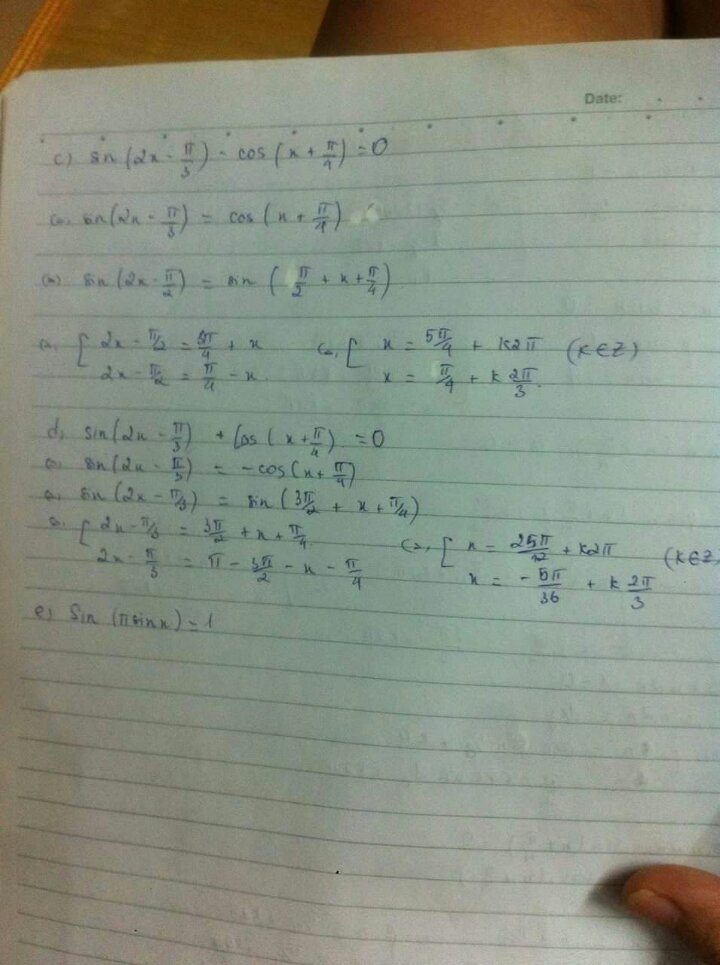 Date:
c) sin(2x - π/3) - cos(x + π/4) = 0
⇔ sin(2x - π/3) = cos(x + π/4)
⇔ sin(2x - π/2) = sin(π/2 + x + π/4)
⇔ [ 2x - π/2 = 3π/4 + x ⇔ [ x = 5π/4 + k2π (k∈Z)
2x - π/2 = π/4 - x x = π/4 + k 2π/3
d, sin(2x - π/3) + Cos(x + π/4) = 0
⇔ sin(2x - π/3) = -cos(x + π/4)
⇔ sin(2x - π/3) = sin(3π/2 + x + π/4)
⇔ [ 2x - π/3 = 3π/2 + x + π/4 ⇔ [ x = 25π/12 + k2π (k∈Z
2x - π/3 = π - 3π/2 - x - π/4 x = - 5π/36 + k 2π/3
e) Sin(πsinx) = 1